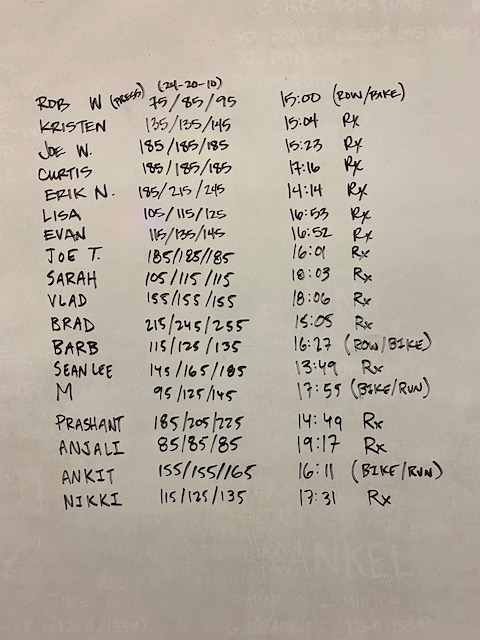 (24-20-10)
ROB W (PRESS) 75/85/95 15:00 (ROW/BIKE)
KRISTEN 135/135/145 15:04 Rx
JOE W. 185/185/185 15:23 Rx
CURTIS 185/185/185 17:16 Rx
ERIK N. 185/215/245 14:14 Rx
LISA 105/115/125 16:53 Rx
EVAN 115/135/145 16:52 Rx
JOE T. 185/185/185 16:01 Rx
SARAH 105/115/115 18:03 Rx
VLAD 155/155/155 18:06 Rx
BRAD 215/245/255 15:05 Rx
BARB 115/125/135 16:27 (ROW/BIKE)
SEAN LEE 145/165/185 13:49 Rx
M 95/125/145 17:55 (BIKE/RUN)
PRASHANT 185/205/225 14:49 Rx
ANJALI 85/85/85 19:17 Rx
ANKIT 155/155/165 16:11 (BIKE/RUN)
NIKKI 115/125/135 17:31 Rx
RANKEL